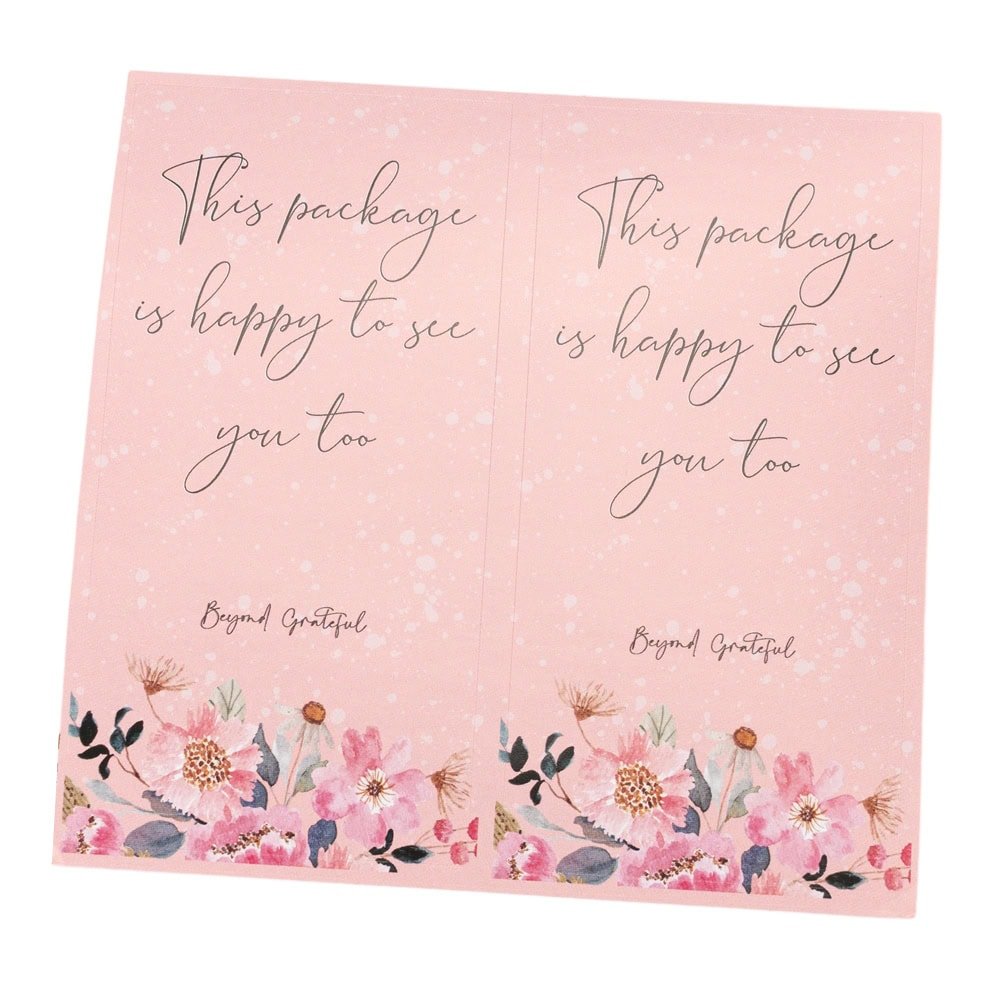 This package
is happy to see
you too
Beyond Grateful
This package
is happy to see
you too
Beyond Grateful